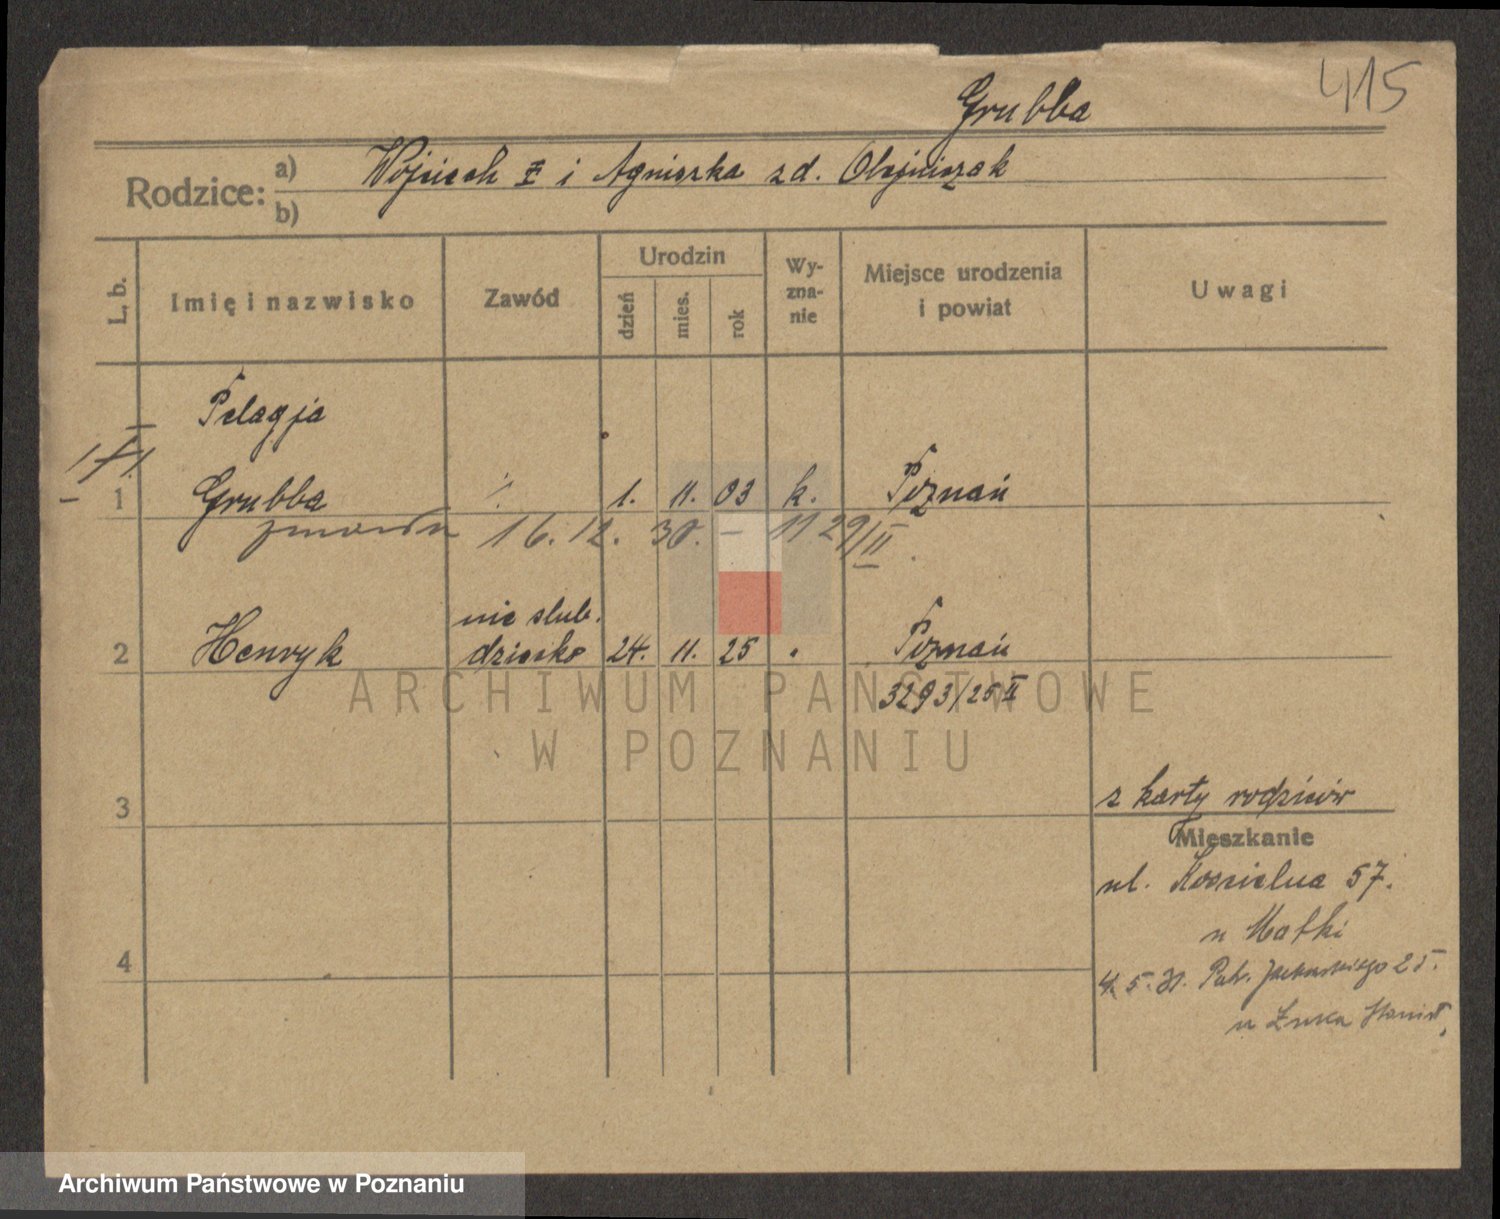 415
Grubba
Rodzice: a) Wojciech Ɨ i Agnieszka z d. Olejniczak
b)
L. b. Imię i nazwisko Zawód Urodzin dzień mies. rok Wy-zna-nie Miejsce urodzenia i powiat Uwagi
Pelagja
1 Grubba ·/. 1. 11. 03 k. Poznań
zmarła 16. 12. 30. – 1129/II
nie ślub.
2 Henryk dziecko 24. 11. 25 " Poznań
3293/25 II
ARCHIWUM PAŃSTWOWE
W POZNANIU
z karty rodziców
3
Mieszkanie
ul. Kościelna 57.
u Matki
4
25.
u Stanisł.
Archiwum Państwowe w Poznaniu